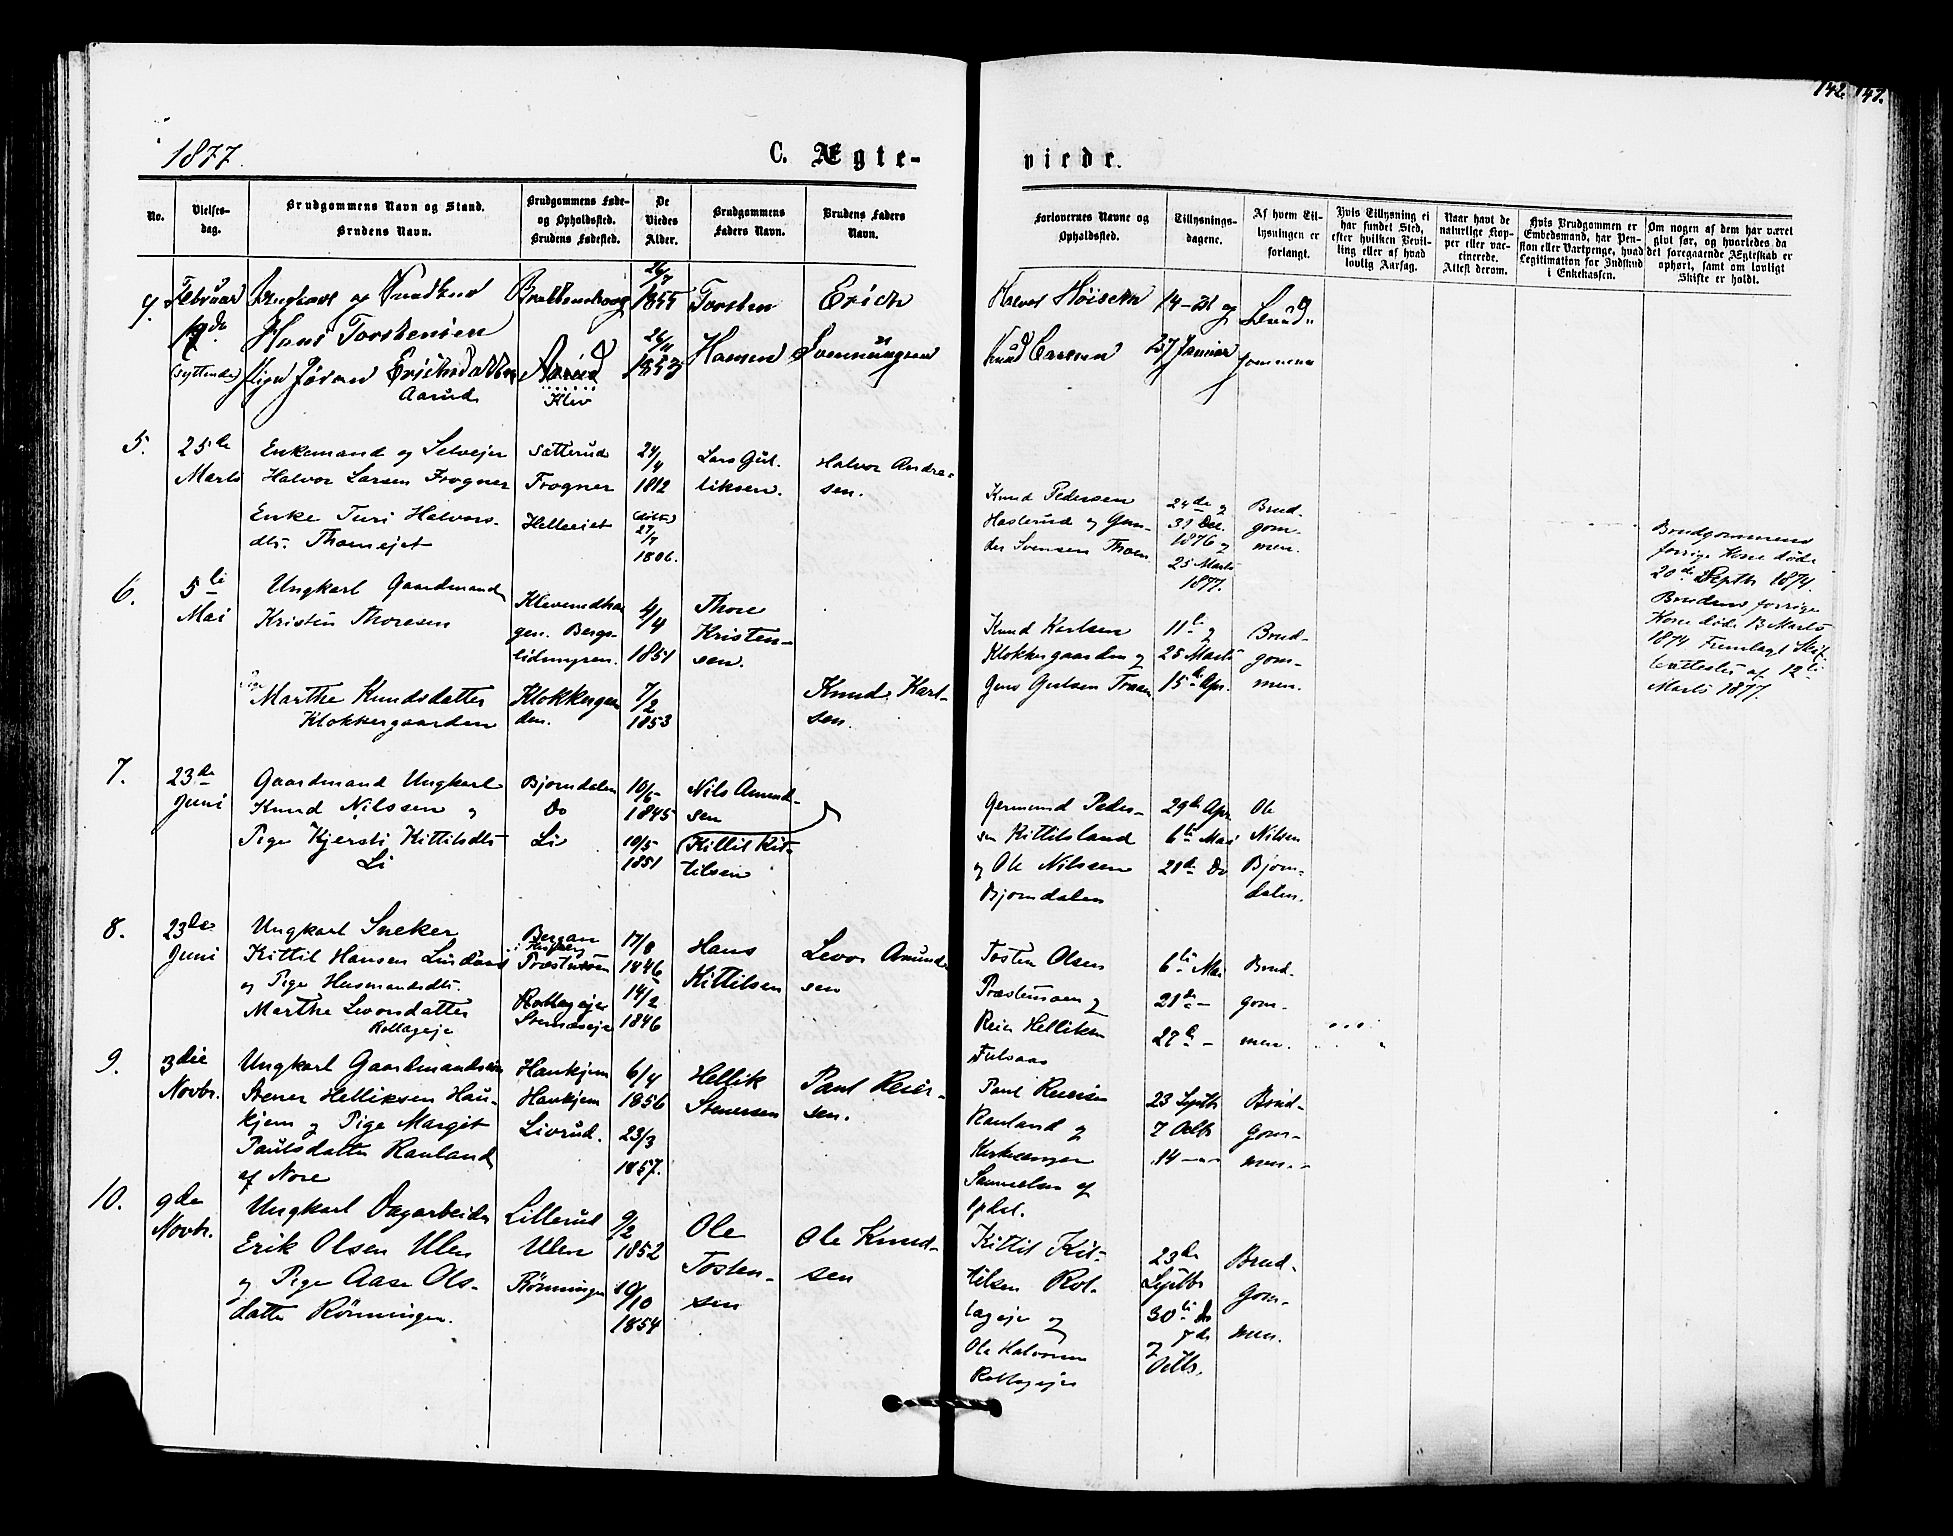 142. 147.
1877.
C. Ægte-
viede.
No.
Vielses-
dag.
Brudgommens Navn og Stand.
Brudens Navn.
Brudgommens Føde-
og Opholdssted.
Brudens Fødested.
De
Viedes
Alder.
Brudgommens
Faders Navn.
Brudens Faders
Navn.
Forlovernes Navne og
Opholdssted.
Tillysnings-
dagene.
Af hvem Til-
lysningen er
forlangt.
Hvis Tillysning ei
har fundet Sted,
efter hvilken Bevil-
ling eller af hvad
lovlig Aarsag.
Naar havt de
naturlige Kop-
per eller vac-
cinerede.
Attest derom.
Hvis Brudgommen er
Embedsmand, har Pen-
sion eller Vartpenge, hvad
Legitimation for Indskud
i Enkekassen.
Om nogen af dem har været
givt før, og hvorledes da
det foregaaende Ægteskab er
ophørt, samt om lovligt
Skifte er holdt.
Februar
(syttende)
Ungkarl og
Hans Torstensen
Pige Jøran Erichsdatter
Aasrud
Klev
26/7
1855
26/11
1853
Torsten
Hansen
Erich
Svennungsen
Halvor
Knud
14 - 21 og
Januar
Brud
gommen
5.
25de
Marts
Enkemand og Selveier
Halvor Larsen Frogner
Enke Turi Halvors-
dtr. Thomejet
Sætterud
Frogner
24/4
1812
(døbt)
27/7
1806.
Lars Gul-
liksen.
Halvor Andre-
sen.
Knud Pedersen
Hasterud og Gun-
der Svensen Thoen
24de og
31 Dec.
1876 og
25 Marts
1877.
Brud-
gom-
men.
Brudgommens
forrige Kone døde
20de Septb 1874.
Brudens forrige
Mand
1874 Fremlagt Skif-
teattester af 12te
Marts 1877.
6.
5te
Mai
Ungkarl Gaardmand
Kristen Thoresen
Pige
Marthe Knudsdatter
Klokkergaarden
gen. Bergs-
lidmyren.
Klokkergaar
den.
4/4
1851
7/2
1853
Thore
Kristen-
sen.
Knud Karl-
sen.
Knud Karlsen
Klokkergaarden og
Jens Gulsen Traaen
11te og
25 Marts
15de Apr.
Brud-
gom-
men.
7.
23de
Juni
Gaardmand Ungkarl
Knud Nilssen og
Pige Kjersti Kittilsdtr
Li
Bjørndalen
Do
Li
10/5
1845
19/5
1851
Nils Amund-
sen
Kittil Kit-
tilsen
Germund Peder-
sen Kittilsland
og Ole Nilssen
Bjørndalen
29de Apr
6te Mai
21de Do
Ole
Nilsen
Bjørn-
dalen.
8.
23de
Juni
Ungkarl Sneker
Kittil Hansen
og Pige Husmandsdtr.
Marthe Levorsdatter
Rollageje
Bergan
Præstemoen
Rollageje
17/8
1846
14/2
1846
Hans
Kittilsen
Levor Amund-
sen
Tosten Olsen
Præstemoen og
Reier Helliksen
Fulsaas
6te Mai
21de -
27de -
Brud-
gom-
men.
9.
3die
Novbr.
Ungkarl Gaardmandssøn
Stener Helliksen Hau-
kjem og Pige Margit
Paulsdatter Rauland
af Nore
Haukjem
Haukjem
Livrud.
6/4
1856
23/3
1857.
Hellik
Stenersen
Paul Reier-
sen.
Paul Reiersen
Rauland og
Samuelsen af
Opdal.
23 Septb
7 Octb
14 -
Brud-
gom-
men.
10.
9de
Novbr.
Ungkarl Dagarbeider
Erik Olsen Ulen
og Pige Aase Ols-
datter Rønningen.
Lillerud
Ulen
Rønningen
9/2
1852
19/10
1854
Ole
Tosten-
sen
Ole Knud-
sen
Kittil Kit-
tilsen Rol-
lageje og
Ole Halvorsen
Rollageje
23de
Septb
30te Do
og 7de
Octb.
Brud-
gom-
men.